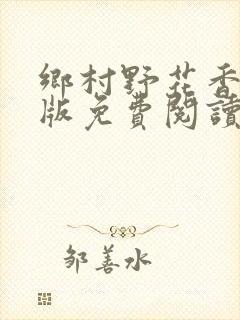 鄉村野花香
版免費閱讀
鄒善水